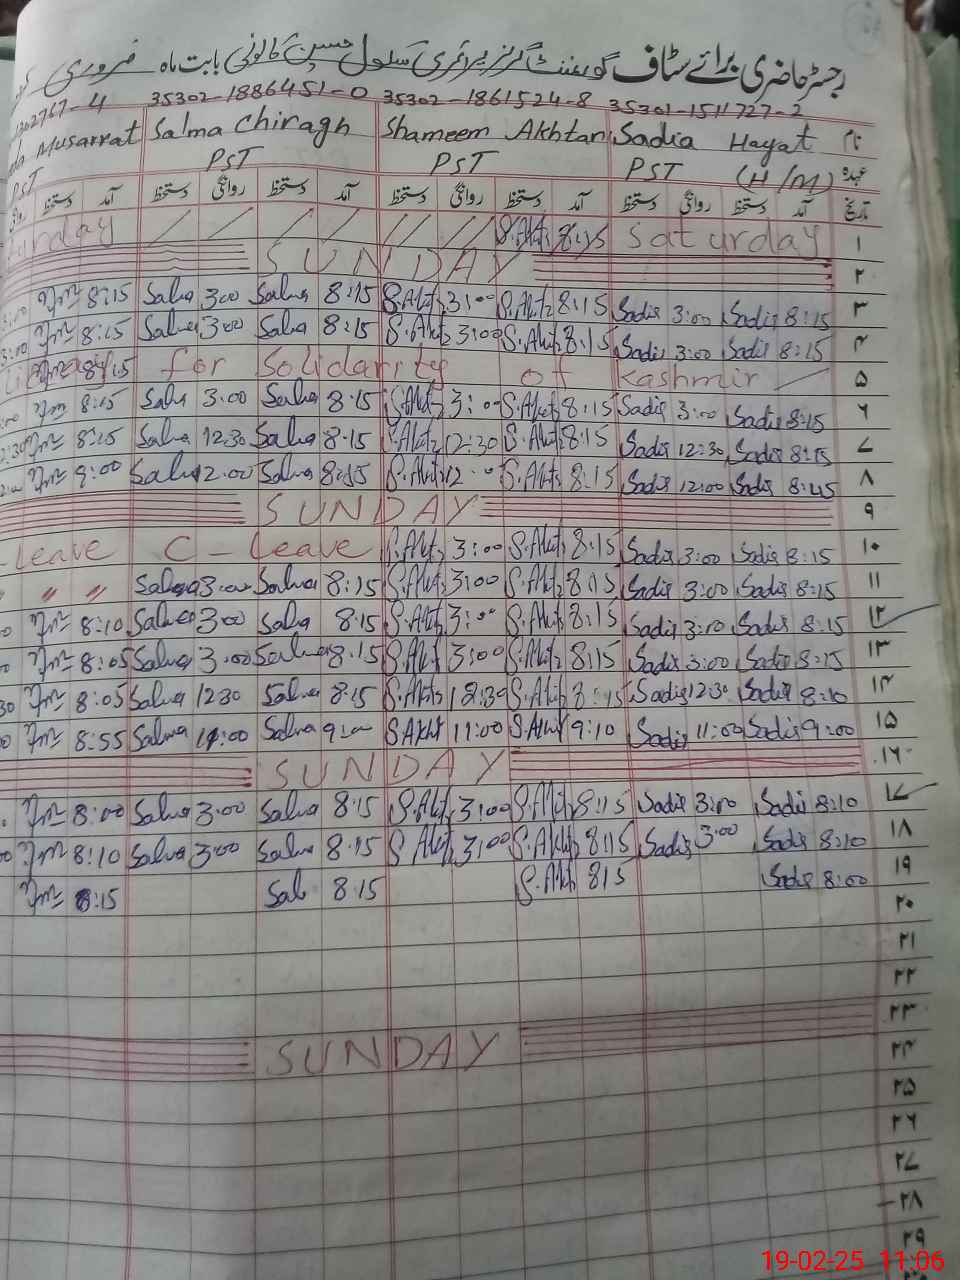 رجسٹر حاضری برائے سٹاف گورنمنٹ گرلز پرائمری سکول حسین کالونی بابت ماہ فروری
1302767-4 35302-1886451-0 35302-1861524-8 35301-1511727-2
Musarrat Salma Chiragh Shameem Akhtar Sadia Hayat نام
PST PST PST PST (H/M) عہدہ
دستخط آمد دستخط روانگی دستخط آمد دستخط روانگی دستخط آمد دستخط روانگی دستخط آمد تاریخ
S.Akht 8:15 Saturday ۱
SUNDAY ۲
3:00 8:15 Salma 3:00 Salma 8:15 S.Akht 3:00 S.Akht 8:15 Sadia 3:00 Sadia 8:15 ۳
3:00 8:15 Salma 3:00 Salma 8:15 S.Akht 3:00 S.Akht 8:15 Sadia 3:00 Sadia 8:15 ۴
8:15 for Solidarity of Kashmir ۵
8:15 Salma 3:00 Salma 8:15 S.Akht 3:00 S.Akht 8:15 Sadia 3:00 Sadia 8:15 ۶
12:30 8:15 Salma 12:30 Salma 8:15 S.Akht 12:30 S.Akht 8:15 Sadia 12:30 Sadia 8:15 ۷
9:00 Salma 12:00 Salma 8:15 S.Akht 12:00 S.Akht 8:15 Sadia 12:00 Sadia 8:45 ۸
SUNDAY ۹
Leave C-Leave S.Akht 3:00 S.Akht 8:15 Sadia 3:00 Sadia 8:15 ۱۰
" " Salma 3:00 Salma 8:15 S.Akht 3:00 S.Akht 8:15 Sadia 3:00 Sadia 8:15 ۱۱
8:10 Salma 3:00 Salma 8:15 S.Akht 3:00 S.Akht 8:15 Sadia 3:10 Sadia 8:15 ۱۲
8:05 Salma 3:00 Salma 8:15 S.Akht 3:00 S.Akht 8:15 Sadia 3:00 Sadia 8:15 ۱۳
30 8:05 Salma 12:30 Salma 8:15 S.Akht 12:30 S.Akht 8:15 Sadia 12:30 Sadia 8:10 ۱۴
8:55 Salma 11:00 Salma 9:00 S.Akht 11:00 S.Akht 9:10 Sadia 11:00 Sadia 9:00 ۱۵
SUNDAY ۱۶
8:00 Salma 3:00 Salma 8:15 S.Akht 3:00 S.Akht 8:15 Sadia 3:00 Sadia 8:10 ۱۷
8:10 Salma 3:00 Salma 8:15 S.Akht 3:00 S.Akht 8:15 Sadia 3:00 Sadia 8:10 ۱۸
8:15 Salma 8:15 S.Akht 815 Sadia 8:00 ۱۹
۲۰
۲۱
۲۲
۲۳
SUNDAY ۲۴
۲۵
۲۶
۲۷
۲۸
۲۹
19-02-25 11:06